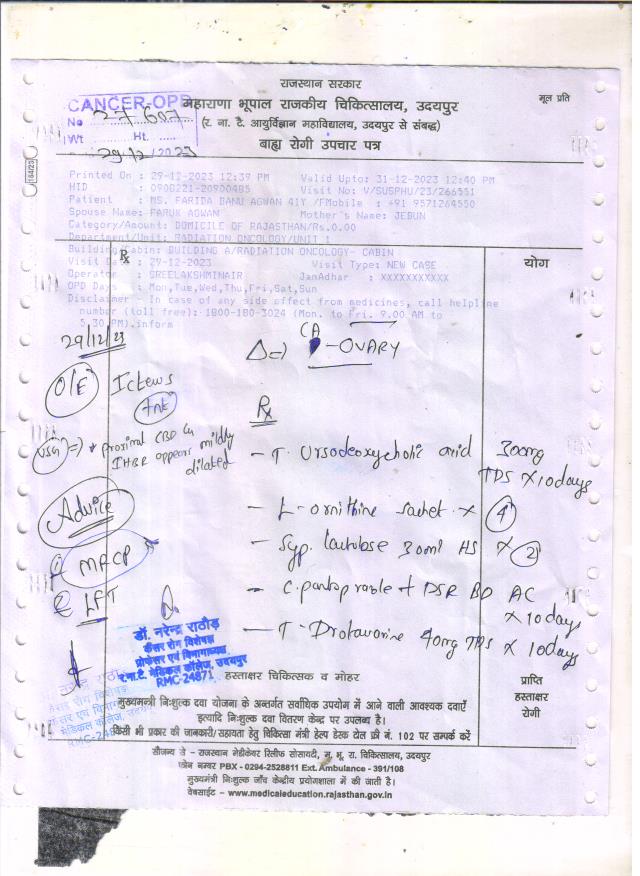 राजस्थान सरकार
मूल प्रति
CANCER-OPD
महाराणा भूपाल राजकीय चिकित्सालय, उदयपुर
No 27607
(र. ना. टै. आयुर्विज्ञान महाविद्यालय, उदयपुर से संबद्ध)
Wt ........ Ht. ......
29/12/2023
बाह्य रोगी उपचार पत्र
164/23
Printed On : 29-12-2023 12:39 PM Valid Upto: 31-12-2023 12:40 PM
HID : 0900221-20900485 Visit No: V/SUSPHU/23/266551
Patient : MS. FARIDA BANU AGWAN 41Y /F Mobile : +91 9571264550
Spouse Name: FARUK AGWAN Mother's Name: JEBUN
Category/Amount: DOMICILE OF RAJASTHAN/Rs.0.00
Department/Unit: RADIATION ONCOLOGY/UNIT 1
Building/Cabin: BUILDING A/RADIATION ONCOLOGY- CABIN
Rx
योग
Visit : 29-12-2023 Visit Type: NEW CASE
Operator : SREELAKSHMINAIR JanAdhar : XXXXXXXXXXX
OPD Days : Mon,Tue,Wed,Thu,Fri,Sat,Sun
Disclaimer - In case of any side effect from medicines, call helpline
number (toll free): 1800-180-3024 (Mon. to Fri. 9.00 AM to
5.30 PM).inform
29/12/23
Δ=) CA -OVARY
O/E Icterus
+ve
Rx
USG =) * Proximal CBD &
IHBR appears mildly
dilated
- T. Ursodeoxycholic acid 300mg
TDS x 10days
Advice
- L-ornithine sachet x 4
- Syp. lactulose 30ml HS x 2
① MRCP
② LFT
- C. pantoprazole + DSR BD AC
x 10days
- T. Drotavorine 40mg TDS x 10days
डॉ. नरेन्द्र राठौड़
कैंसर रोग विशेषज्ञ
प्रोफेसर एवं विभागाध्यक्ष
र.ना.टै. मेडिकल कॉलेज, उदयपुर
RMC-24871
हस्ताक्षर चिकित्सक व मोहर
प्राप्ति
हस्ताक्षर
रोगी
मुख्यमन्त्री निःशुल्क दवा योजना के अन्तर्गत सर्वाधिक उपयोग में आने वाली आवश्यक दवाएँ
इत्यादि निःशुल्क दवा वितरण केन्द्र पर उपलब्ध है।
किसी भी प्रकार की जानकारी/सहायता हेतु चिकित्सा मंत्री हेल्प डेस्क टोल फ्री नं. 102 पर सम्पर्क करें
सौजन्य से - राजस्थान मेडीकेयर रिलीफ सोसायटी, म. भू. रा. चिकित्सालय, उदयपुर
फोन नम्बर PBX - 0294-2528811 Ext. Ambulance - 391/108
मुख्यमंत्री निःशुल्क जाँच केन्द्रीय प्रयोगशाला में की जाती है।
वेबसाईट - www.medicaleducation.rajasthan.gov.in